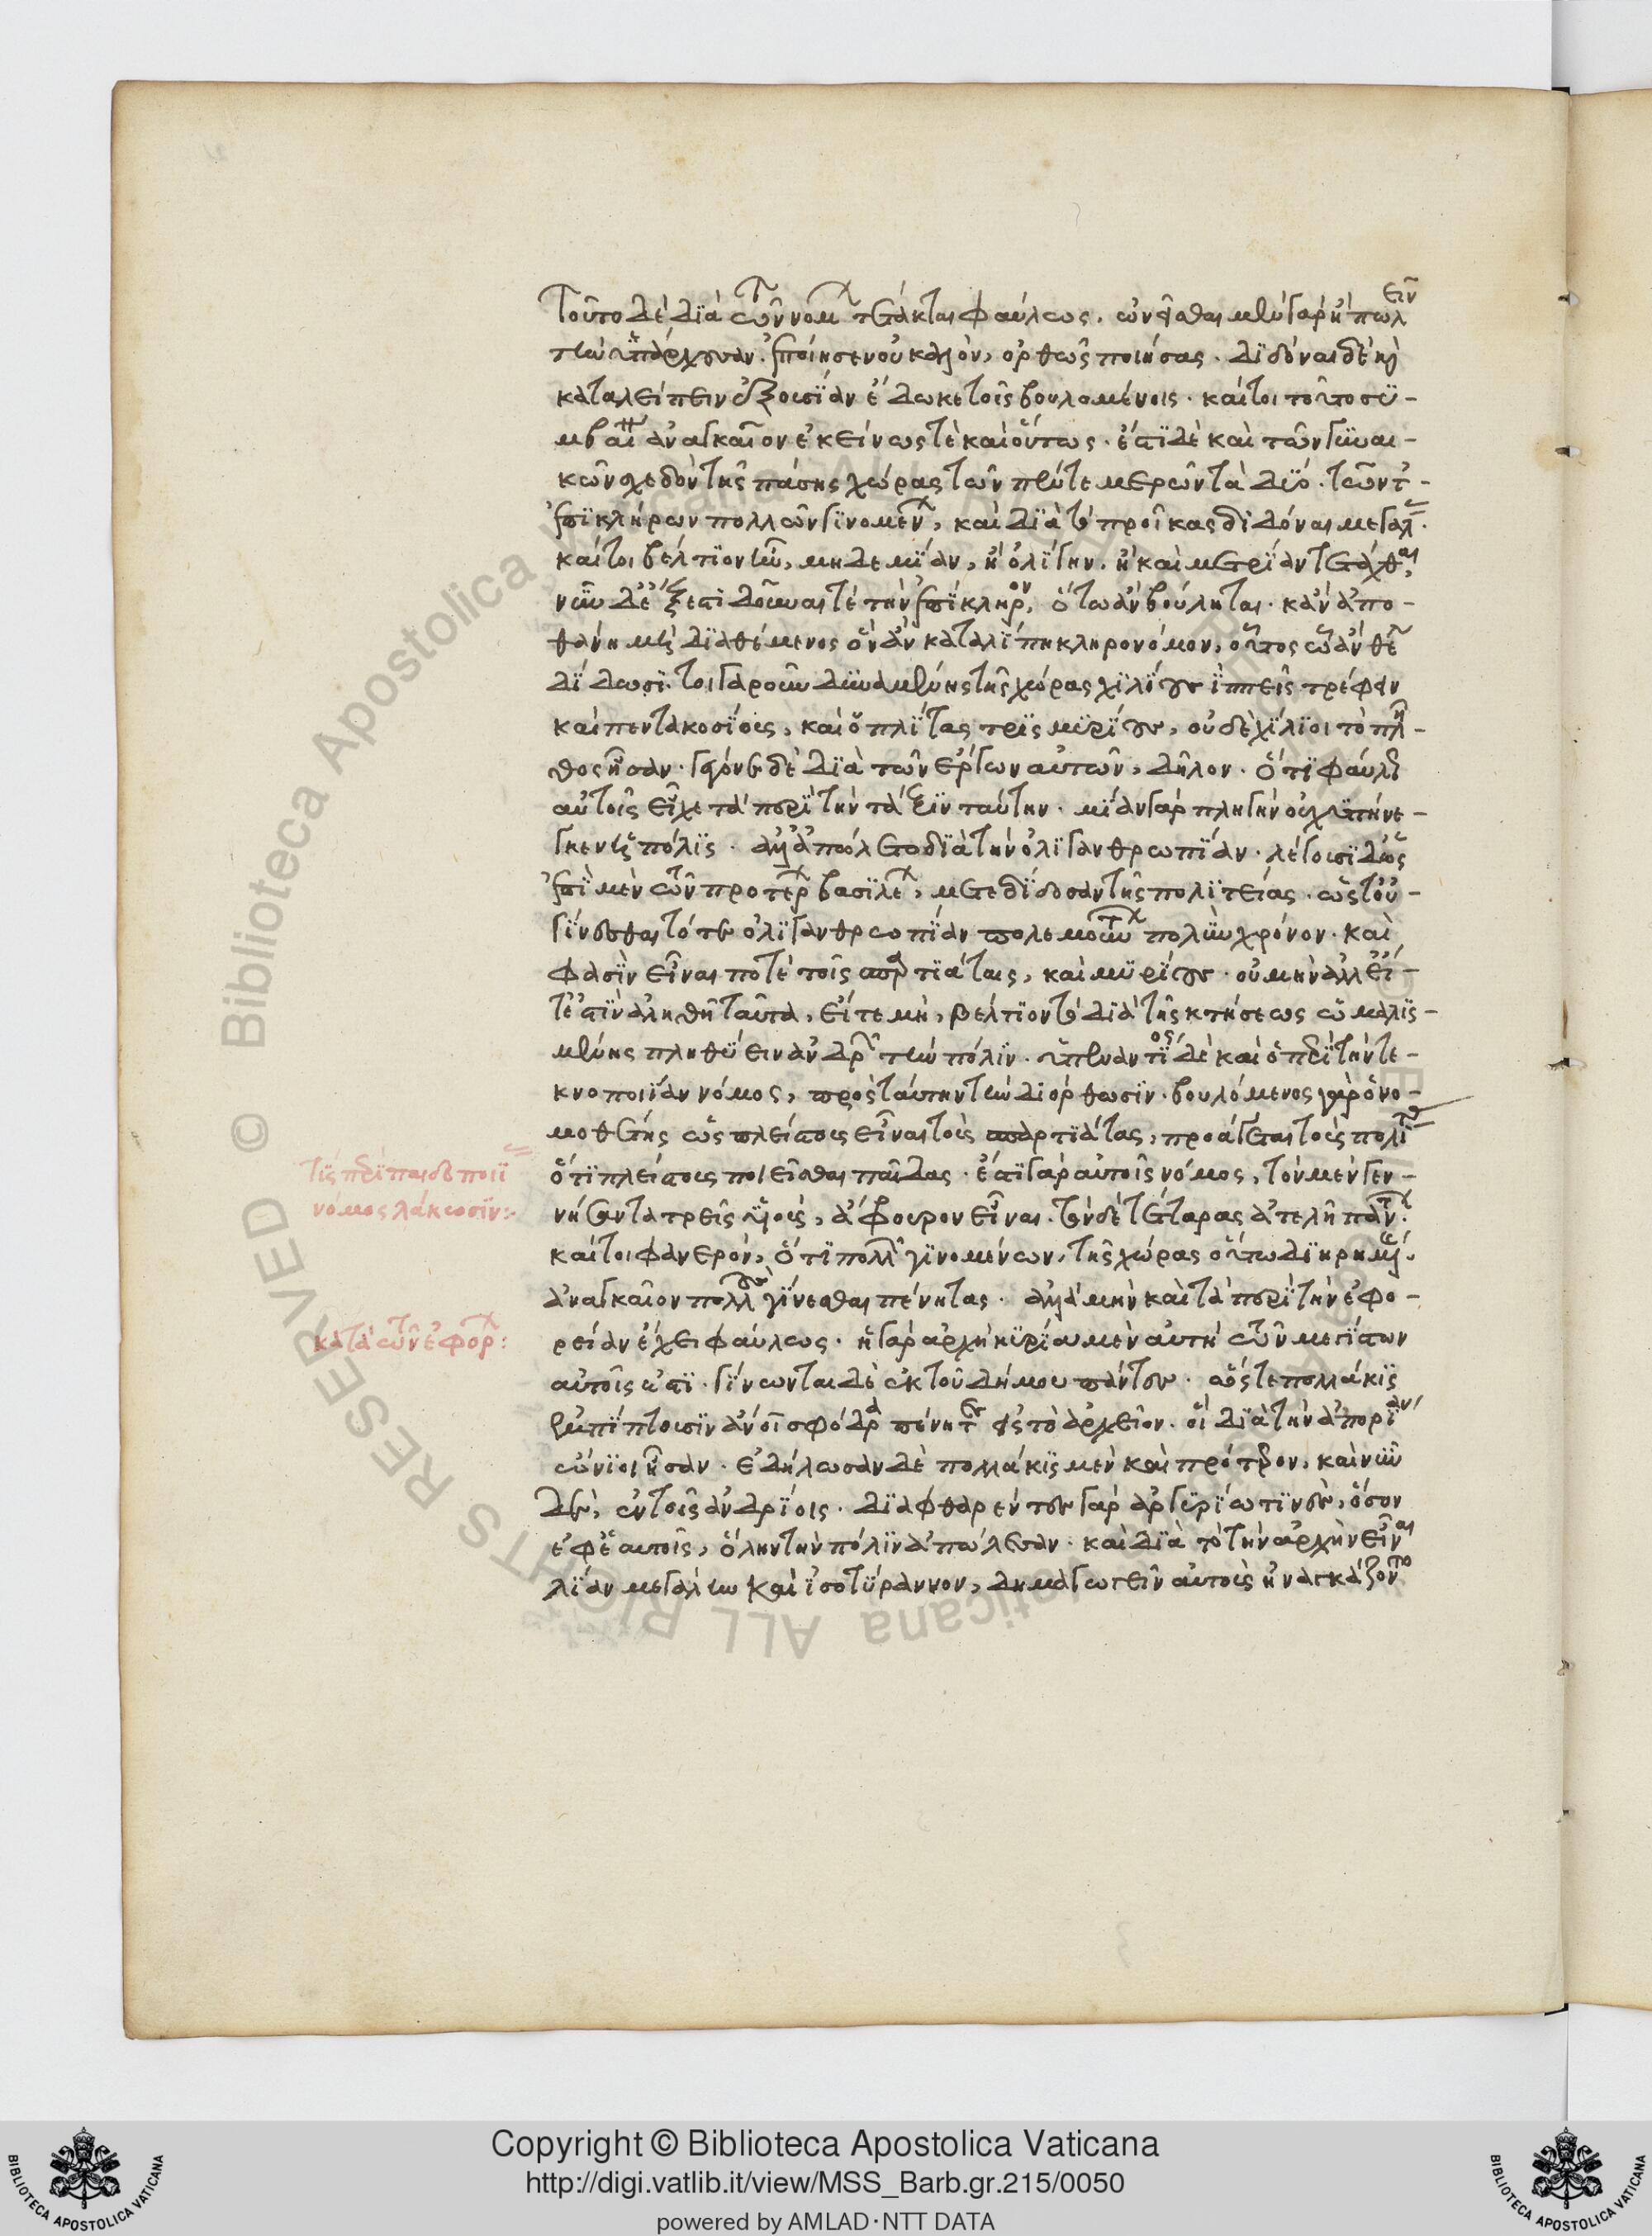 Τοῦτο δὲ διὰ τῶν νόμων τέτακται φαύλως. ὠνεῖσθαι μὲν γὰρ ἢ πωλεῖν
τὴν ὑπάρχουσαν. ἐποίησεν οὐ καλόν, ὀρθῶς ποιήσας. διδόναι δὲ καὶ
καταλείπειν ἐξουσίαν ἔδωκε τοῖς βουλομένοις. καίτοι τοῦτο συ-
μβαίνειν ἀναγκαῖον ἐκείνως τὲ καὶ οὕτως. ἔστι δὲ καὶ τῶν γυναι-
κῶν σχεδὸν τῆς πάσης χώρας τῶν πέντε μερῶν τὰ δύο. τῶν τ'
ἐπικλήρων πολλῶν γινομένων, καὶ διὰ τὸ προῖκας διδόναι μεγάλας.
καίτοι βέλτιον ἦν, μηδεμίαν, ἢ ὀλίγην. ἢ καὶ μετρίαν τετάχθαι,
νῦν δὲ ἔξεστι δοῦναι τὲ τὴν ἐπίκληρον, ὅτω ἂν βούληται. κἂν ἀπο-
θάνη μὴ διαθέμενος ὃν ἂν καταλίπη κληρονόμον, οὗτος ὧ ἂν θέλῃ
δίδωσι. τοιγαροῦν δυναμένης τῆς χώρας χιλίους ἱππεῖς τρέφειν
καὶ πεντακοσίους, καὶ ὁπλίτας τρισμυρίους, οὐδὲ χίλιοι τὸ πλῆ-
θος ἦσαν. γέγονε δὲ διὰ τῶν ἔργων αὐτῶν, δῆλον. ὅτι φαύλως
αὐτοῖς εἶχε τὰ περὶ τὴν τάξιν ταύτην. μίαν γὰρ πληγὴν οὐχ ὑπήνε-
γκεν ἡ πόλις. ἀλλ' ἀπώλετο διὰ τὴν ὀλιγανθρωπίαν. λέγουσι δ' ὡς
ἐπὶ μὲν τῶν προτέρων βασιλέων, μετεδίδοσαν τῆς πολιτείας. ὥστ' οὐ
γίνεσθαι τότε ὀλιγανθρωπίαν πολεμούντων πολὺν χρόνον. καὶ
φασὶν εἶναι ποτὲ τοῖς σπαρτιάταις, καὶ μυρίους. οὐ μὴν ἀλλ' εἴ-
τ' ἐστὶν ἀληθῆ ταῦτα, εἴτε μὴ, βέλτιον τὸ διὰ τῆς κτήσεως ὡμαλισ-
μένης πληθύειν ἀνδρῶν τὴν πόλιν. ὑπεναντίος δὲ καὶ ὁ περὶ τὴν τε-
κνοποιΐαν νόμος, πρὸς ταύτην τὴν διόρθωσιν. βουλόμενος γὰρ ὁ νο-
μοθέτης ὡς πλείστους εἶναι τοὺς σπαρτιάτας, προάγεται τοὺς πολίτας
ὅτι πλείστους ποιεῖσθαι παῖδας. ἔστι γὰρ αὐτοῖς νόμος, τὸν μὲν γεν-
νήσαντα τρεῖς υἱοὺς, ἄφρουρον εἶναι. τὸν δὲ τέτταρας ἀτελῆ πάντων.
καίτοι φανερὸν, ὅτι πολλῶν γινομένων, τῆς χώρας οὕτω διηρημένης.
ἀναγκαῖον πολλοὺς γίνεσθαι πένητας. ἀλλὰ μὴν καὶ τὰ περὶ τὴν ἐφο-
ρείαν ἔχει φαύλως. ἡ γὰρ ἀρχὴ κυρία μὲν αὐτὴ τῶν μεγίστων
αὐτοῖς ἐστι. γίνωνται δὲ ἐκ τοῦ δήμου πάντες. ὥστε πολλάκις
ἐμπίπτουσιν ἄνοι σφόδρα πένητες εἰς τὸ ἀρχεῖον. οἳ διὰ τὴν ἀπορίαν
ὤνιοι ἦσαν. ἐδήλωσαν δὲ πολλάκις μὲν καὶ πρότερον, καὶ νῦν
δὲ, ἐν τοῖς ἀνδρίοις. διαφθαρέντες γὰρ ἀργυρίω τινὲς, ὅσον
ἐφ' ἑαυτοῖς, ὅλην τὴν πόλιν ἀπώλεσαν. καὶ διὰ τὸ τὴν ἀρχὴν εἶναι
λίαν μεγάλην καὶ ἰσοτύραννον, δημαγωγεῖν αὐτοὺς ἠναγκάζοντο
τίς περὶ παιδοποιΐας
νόμος λάκωσιν:
κατὰ τῶν ἐφόρων:
Biblioteca Apostolica Vaticana ALL RIGHTS RESERVED ©
Copyright © Biblioteca Apostolica Vaticana
http://digi.vatlib.it/view/MSS_Barb.gr.215/0050
powered by AMLAD·NTT DATA
BIBLIOTECA APOSTOLICA VATICANA
BIBLIOTECA APOSTOLICA VATICANA